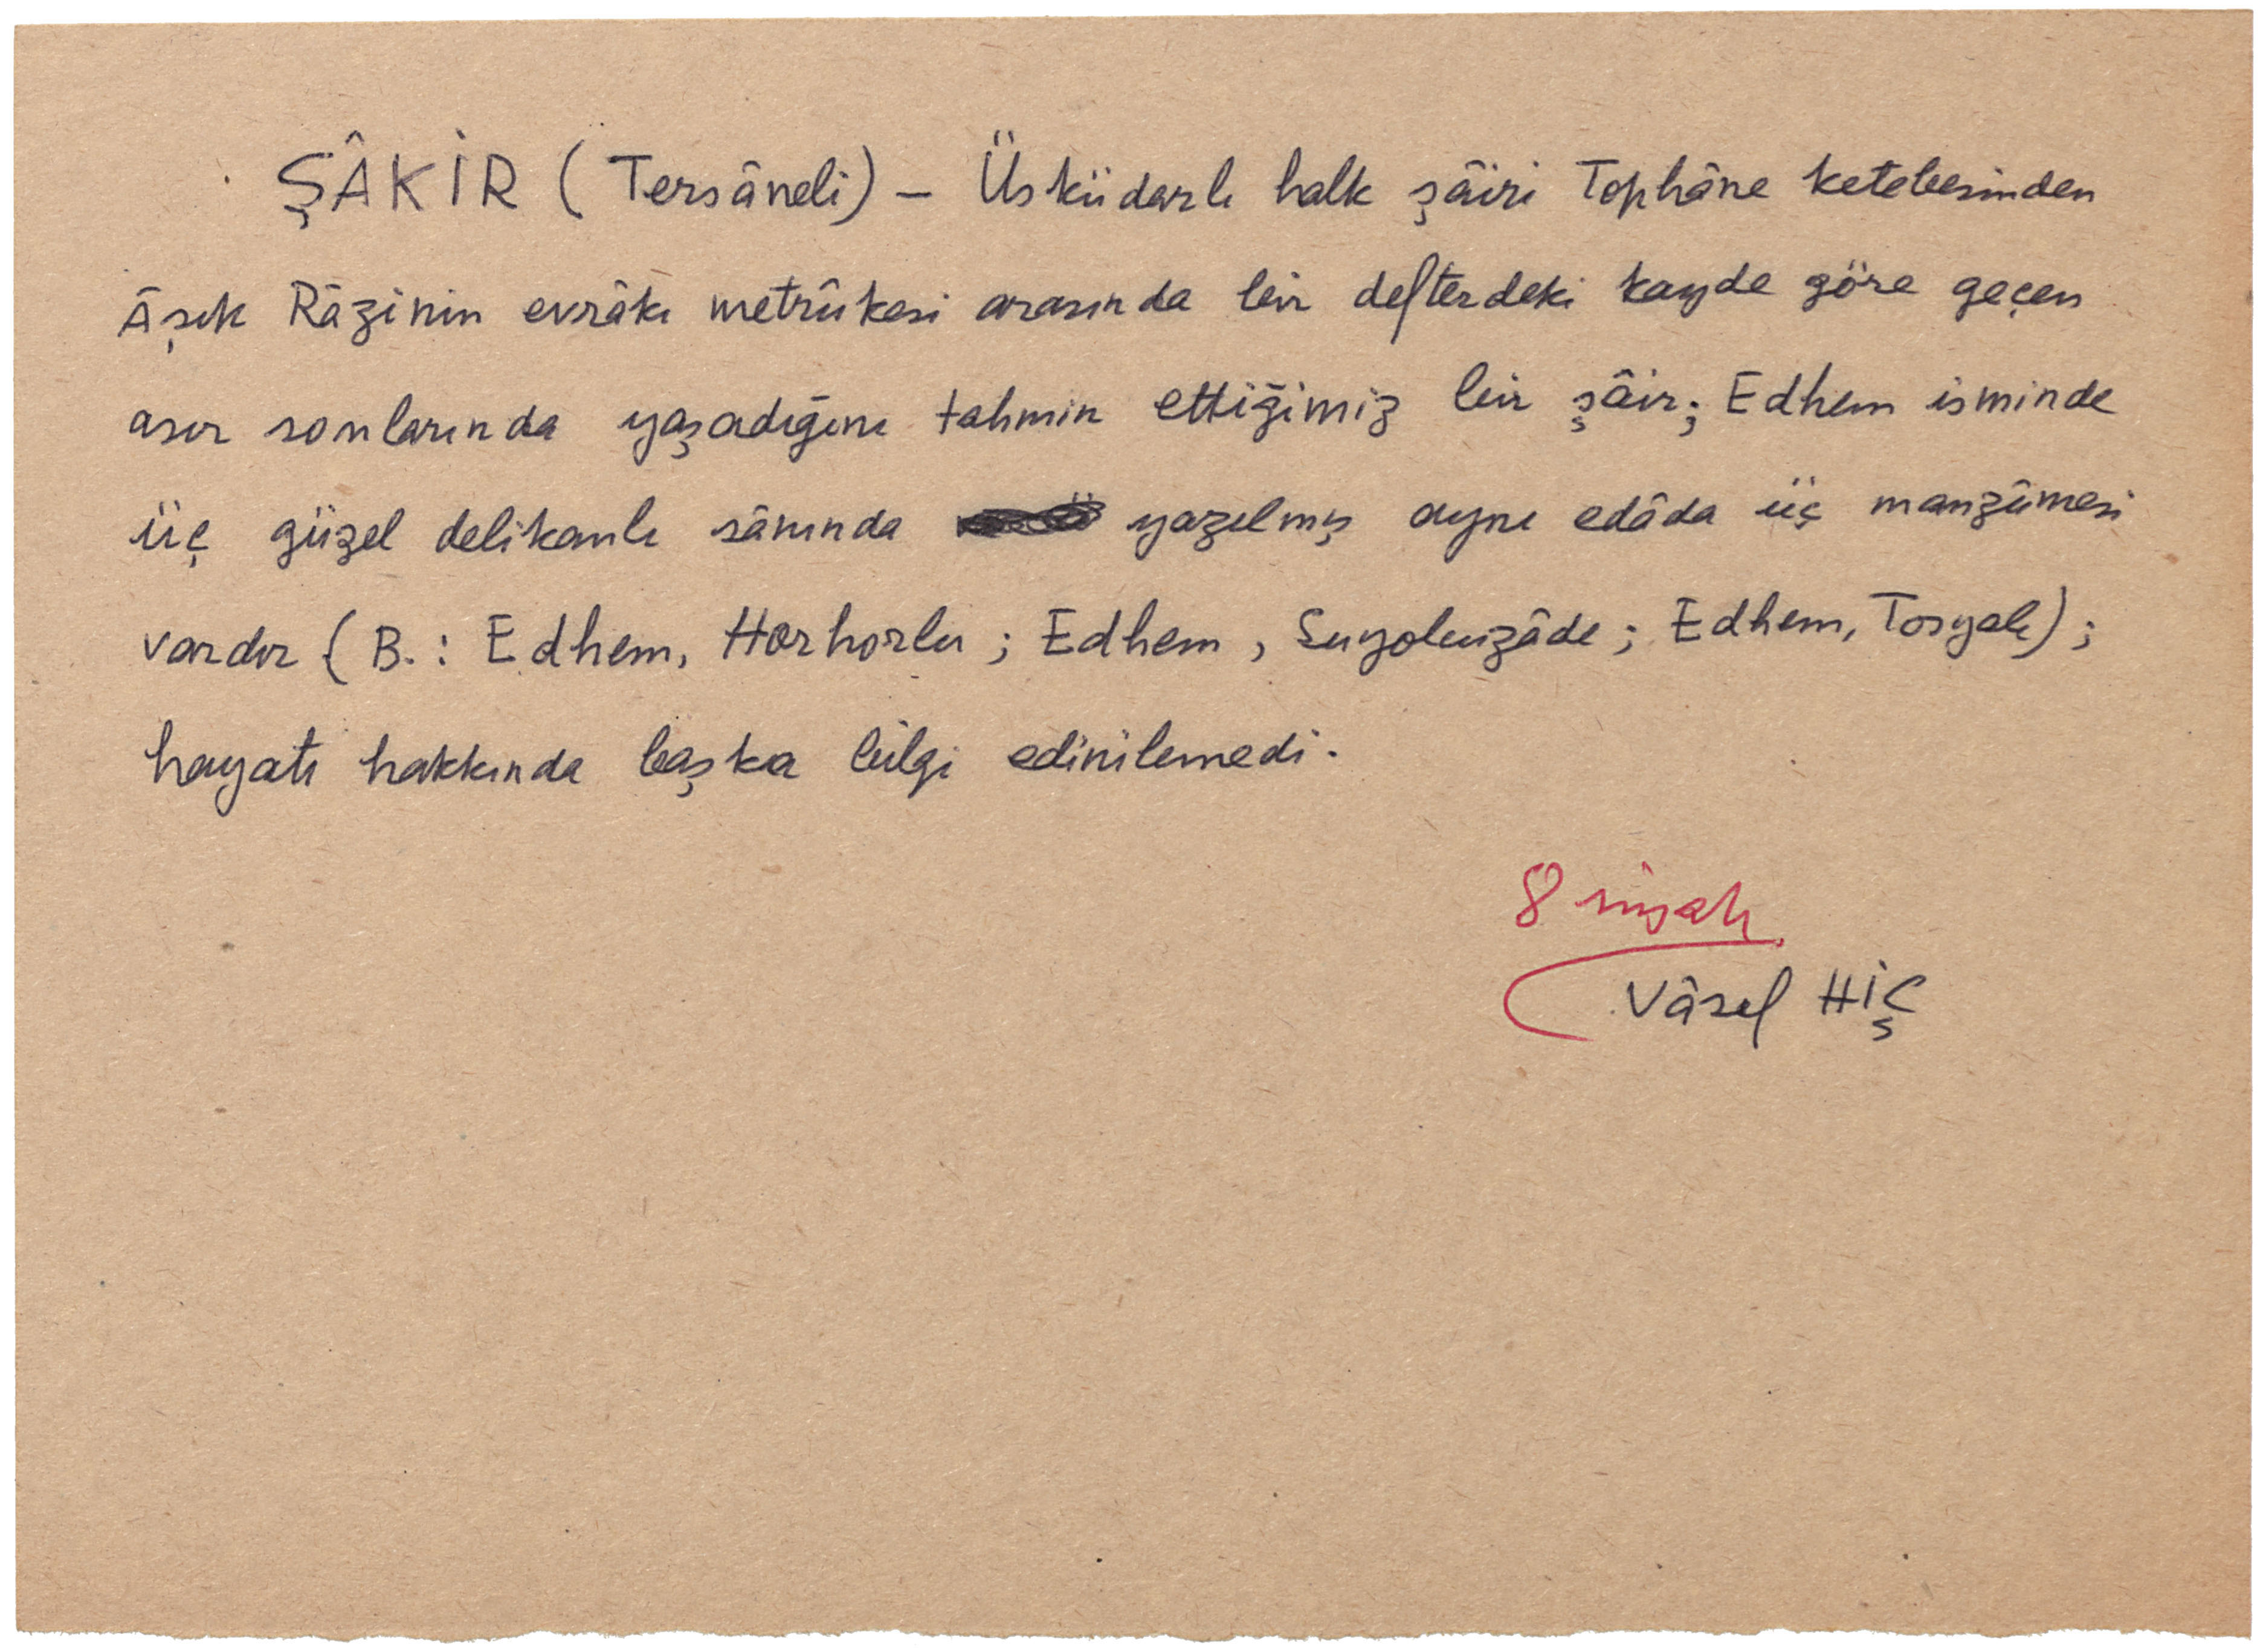 ŞÂKİR (Tersâneli) – Üsküdarlı halk şâiri Tophâne ketebesinden
Âşık Râzinin evrâkı metrûkesi arasında bir defterdeki kayde göre geçen
asır sonlarında yaşadığını tahmin ettiğimiz bir şâir; Edhem isminde
üç güzel delikanlı şânında yazılmış aynı edâda üç manzûmesi
vardır (B.: Edhem, Horhorlu; Edhem, Suyolcuzâde; Edhem, Tosyalı);
hayatı hakkında başka bilgi edinilemedi.
8 nişah
Vâsıf HİÇ